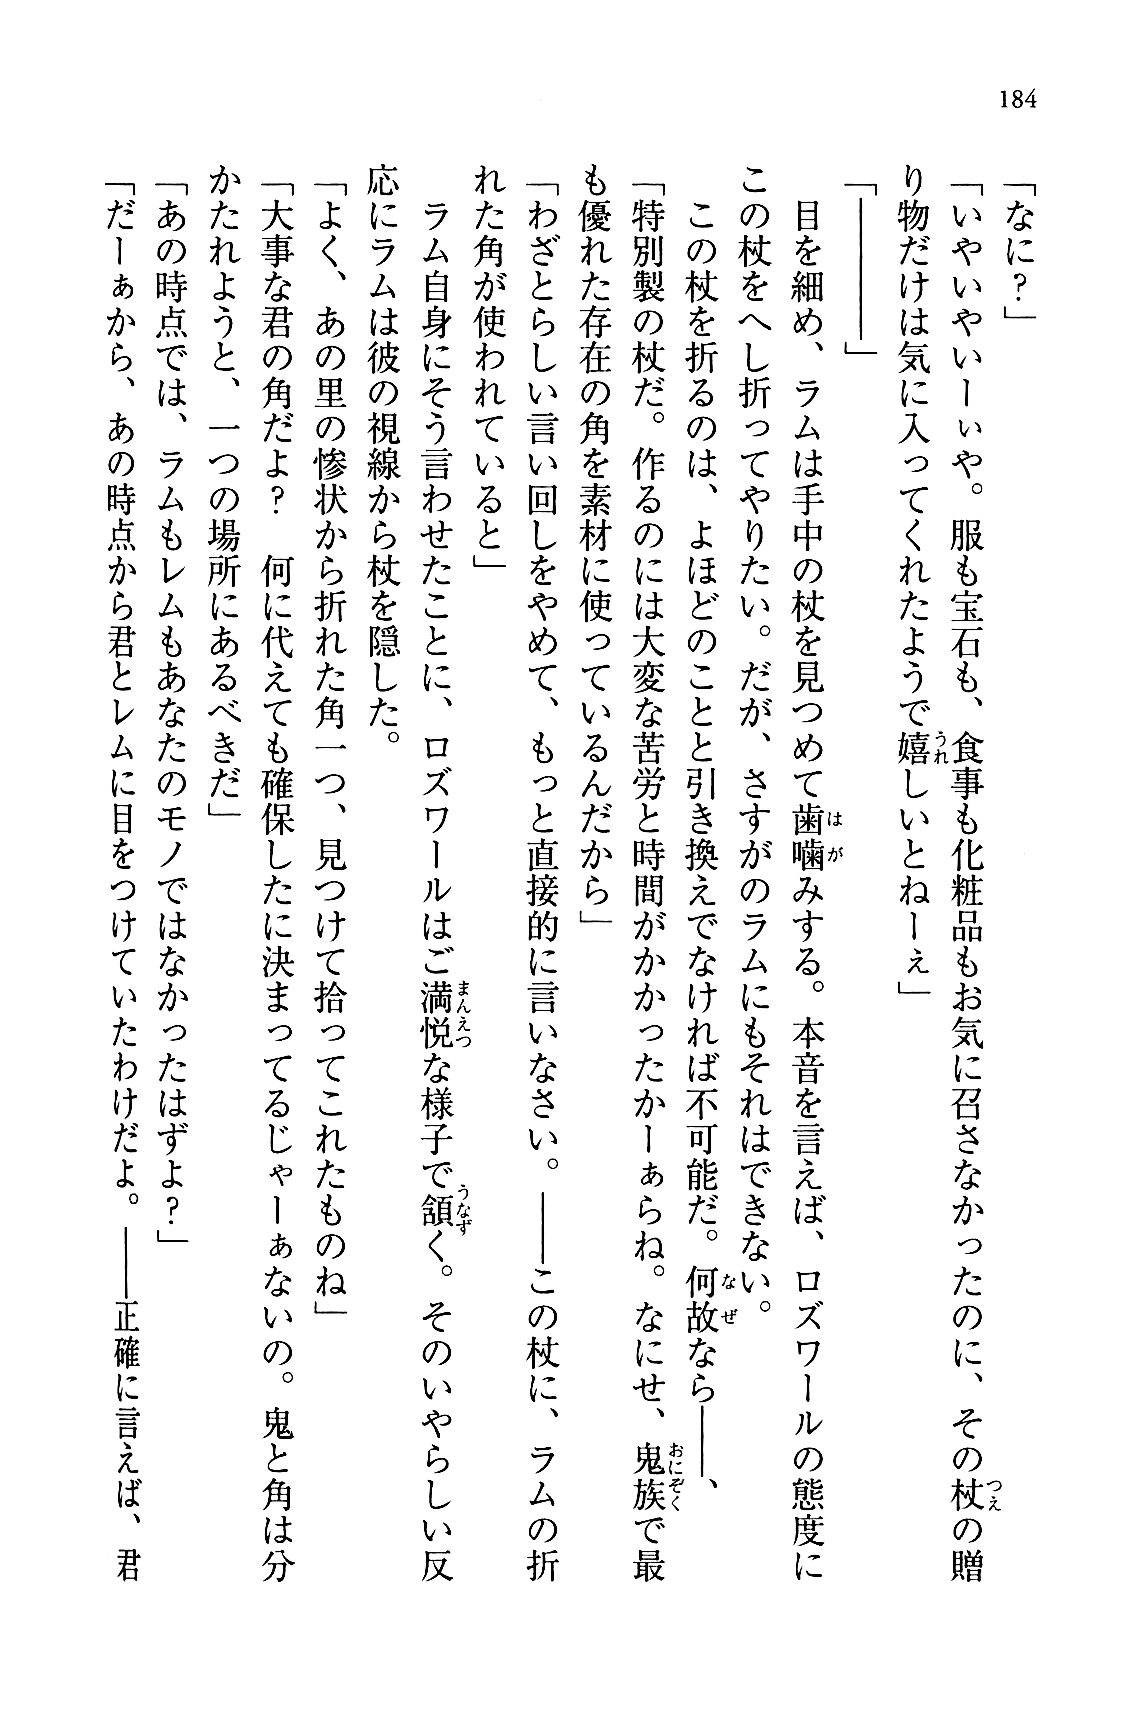 184
「なに?」
「いやいやいーぃや。服も宝石も、食事も化粧品もお気に召さなかったのに、その杖の贈
り物だけは気に入ってくれたようで嬉しいとねーぇ」
「――――」
目を細め、ラムは手中の杖を見つめて歯噛みする。本音を言えば、ロズワールの態度に
この杖をへし折ってやりたい。だが、さすがのラムにもそれはできない。
この杖を折るのは、よほどのことと引き換えでなければ不可能だ。何故なら――、
「特別製の杖だ。作るのには大変な苦労と時間がかかったかーぁらね。なにせ、鬼族で最
も優れた存在の角を素材に使っているんだから」
「わざとらしい言い回しをやめて、もっと直接的に言いなさい。――この杖に、ラムの折
れた角が使われていると」
ラム自身にそう言わせたことに、ロズワールはご満悦な様子で頷く。そのいやらしい反
応にラムは彼の視線から杖を隠した。
「よく、あの里の惨状から折れた角一つ、見つけて拾ってこれたものね」
「大事な君の角だよ? 何に代えても確保したに決まってるじゃーぁないの。鬼と角は分
かたれようと、一つの場所にあるべきだ」
「あの時点では、ラムもレムもあなたのモノではなかったはずよ?」
「だーぁから、あの時点から君とレムに目をつけていたわけだよ。――正確に言えば、君